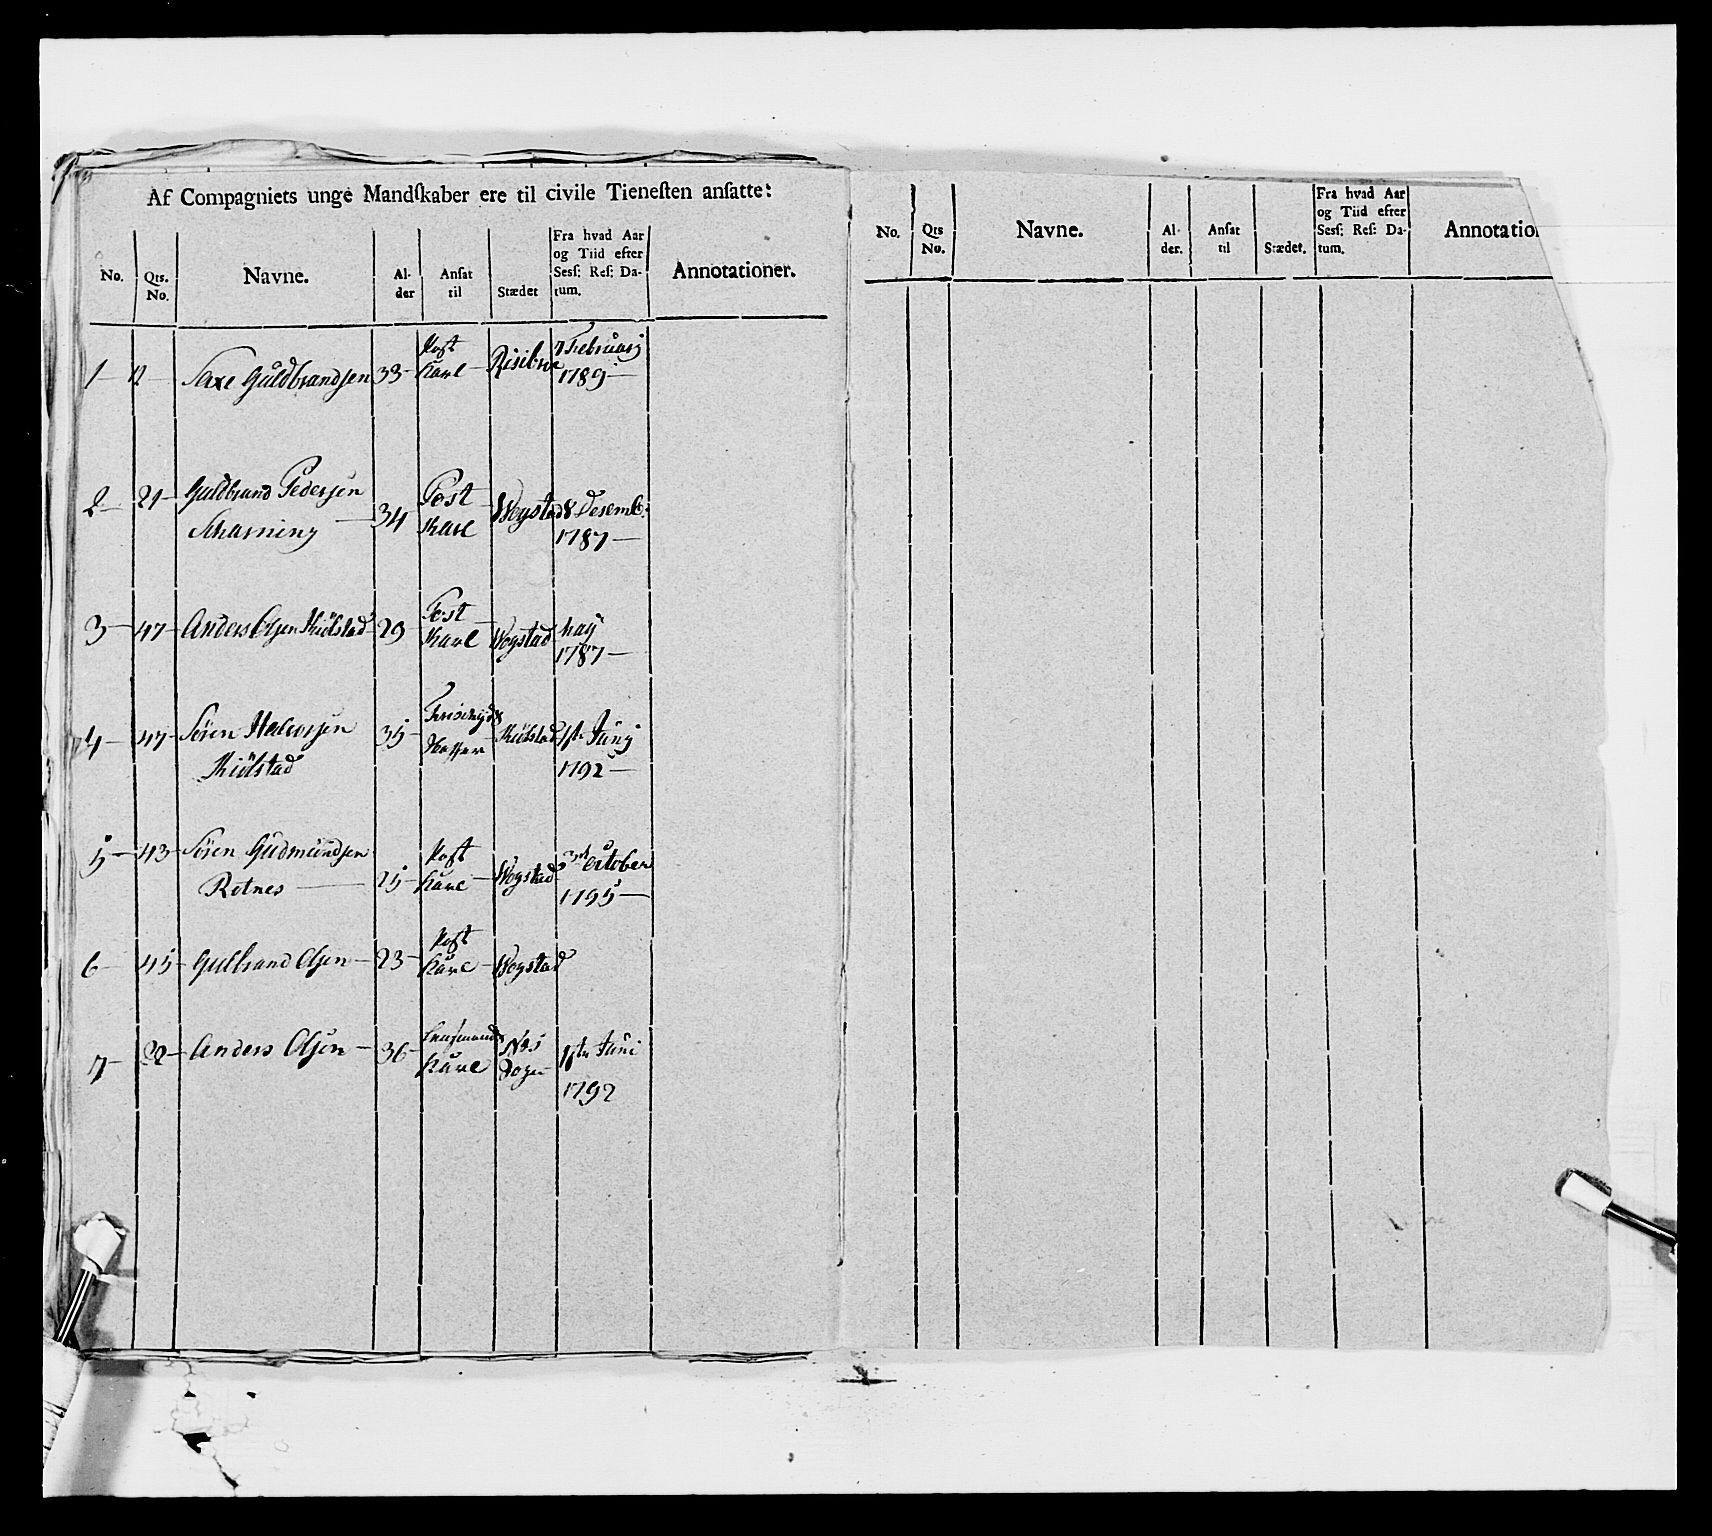 Af Compagniets unge Mandſkaber ere til civile Tieneſten anſatte:
No. Qts. No. Navne. Al- der Anſat til Stædet Fra hvad Aar og Tiid efter Sesſ: Reſ: Da- tum. Annotationer.
1 — 12 — Saxe Guldbrandsen 33 — Post Karl — Risibroe 7 Februarj 1789 —
2 — 21 — Guldbrand Pedersen 34 Post Karl Wogstad 8 Desemb: 1787 —
Scharning —
3 — 47 — Anders Olsen Kiölstad 29 Post Karl Wogstad Maÿ 1787 —
4 — 47 — Sören Halvorsen 35 — Kiölstad 1ste Junj 1792 —
Kiölstad
5 — 43 — Sören Gudmundsen 25 — Post Karl — Wogstad 3die October 1795 —
Rotnes —
6 — 45 — Gulbrand Olsen — 23 — Post Karl — Wogstad
7 — 22 — Anders Olsen — 36 — Karl 1ste Juni 1792
No. Qts No. Navne. Al- der. Anſat til Stædet. Fra hvad Aar og Tiid efter Sesſ: Reſ: Da- tum. Annotatio